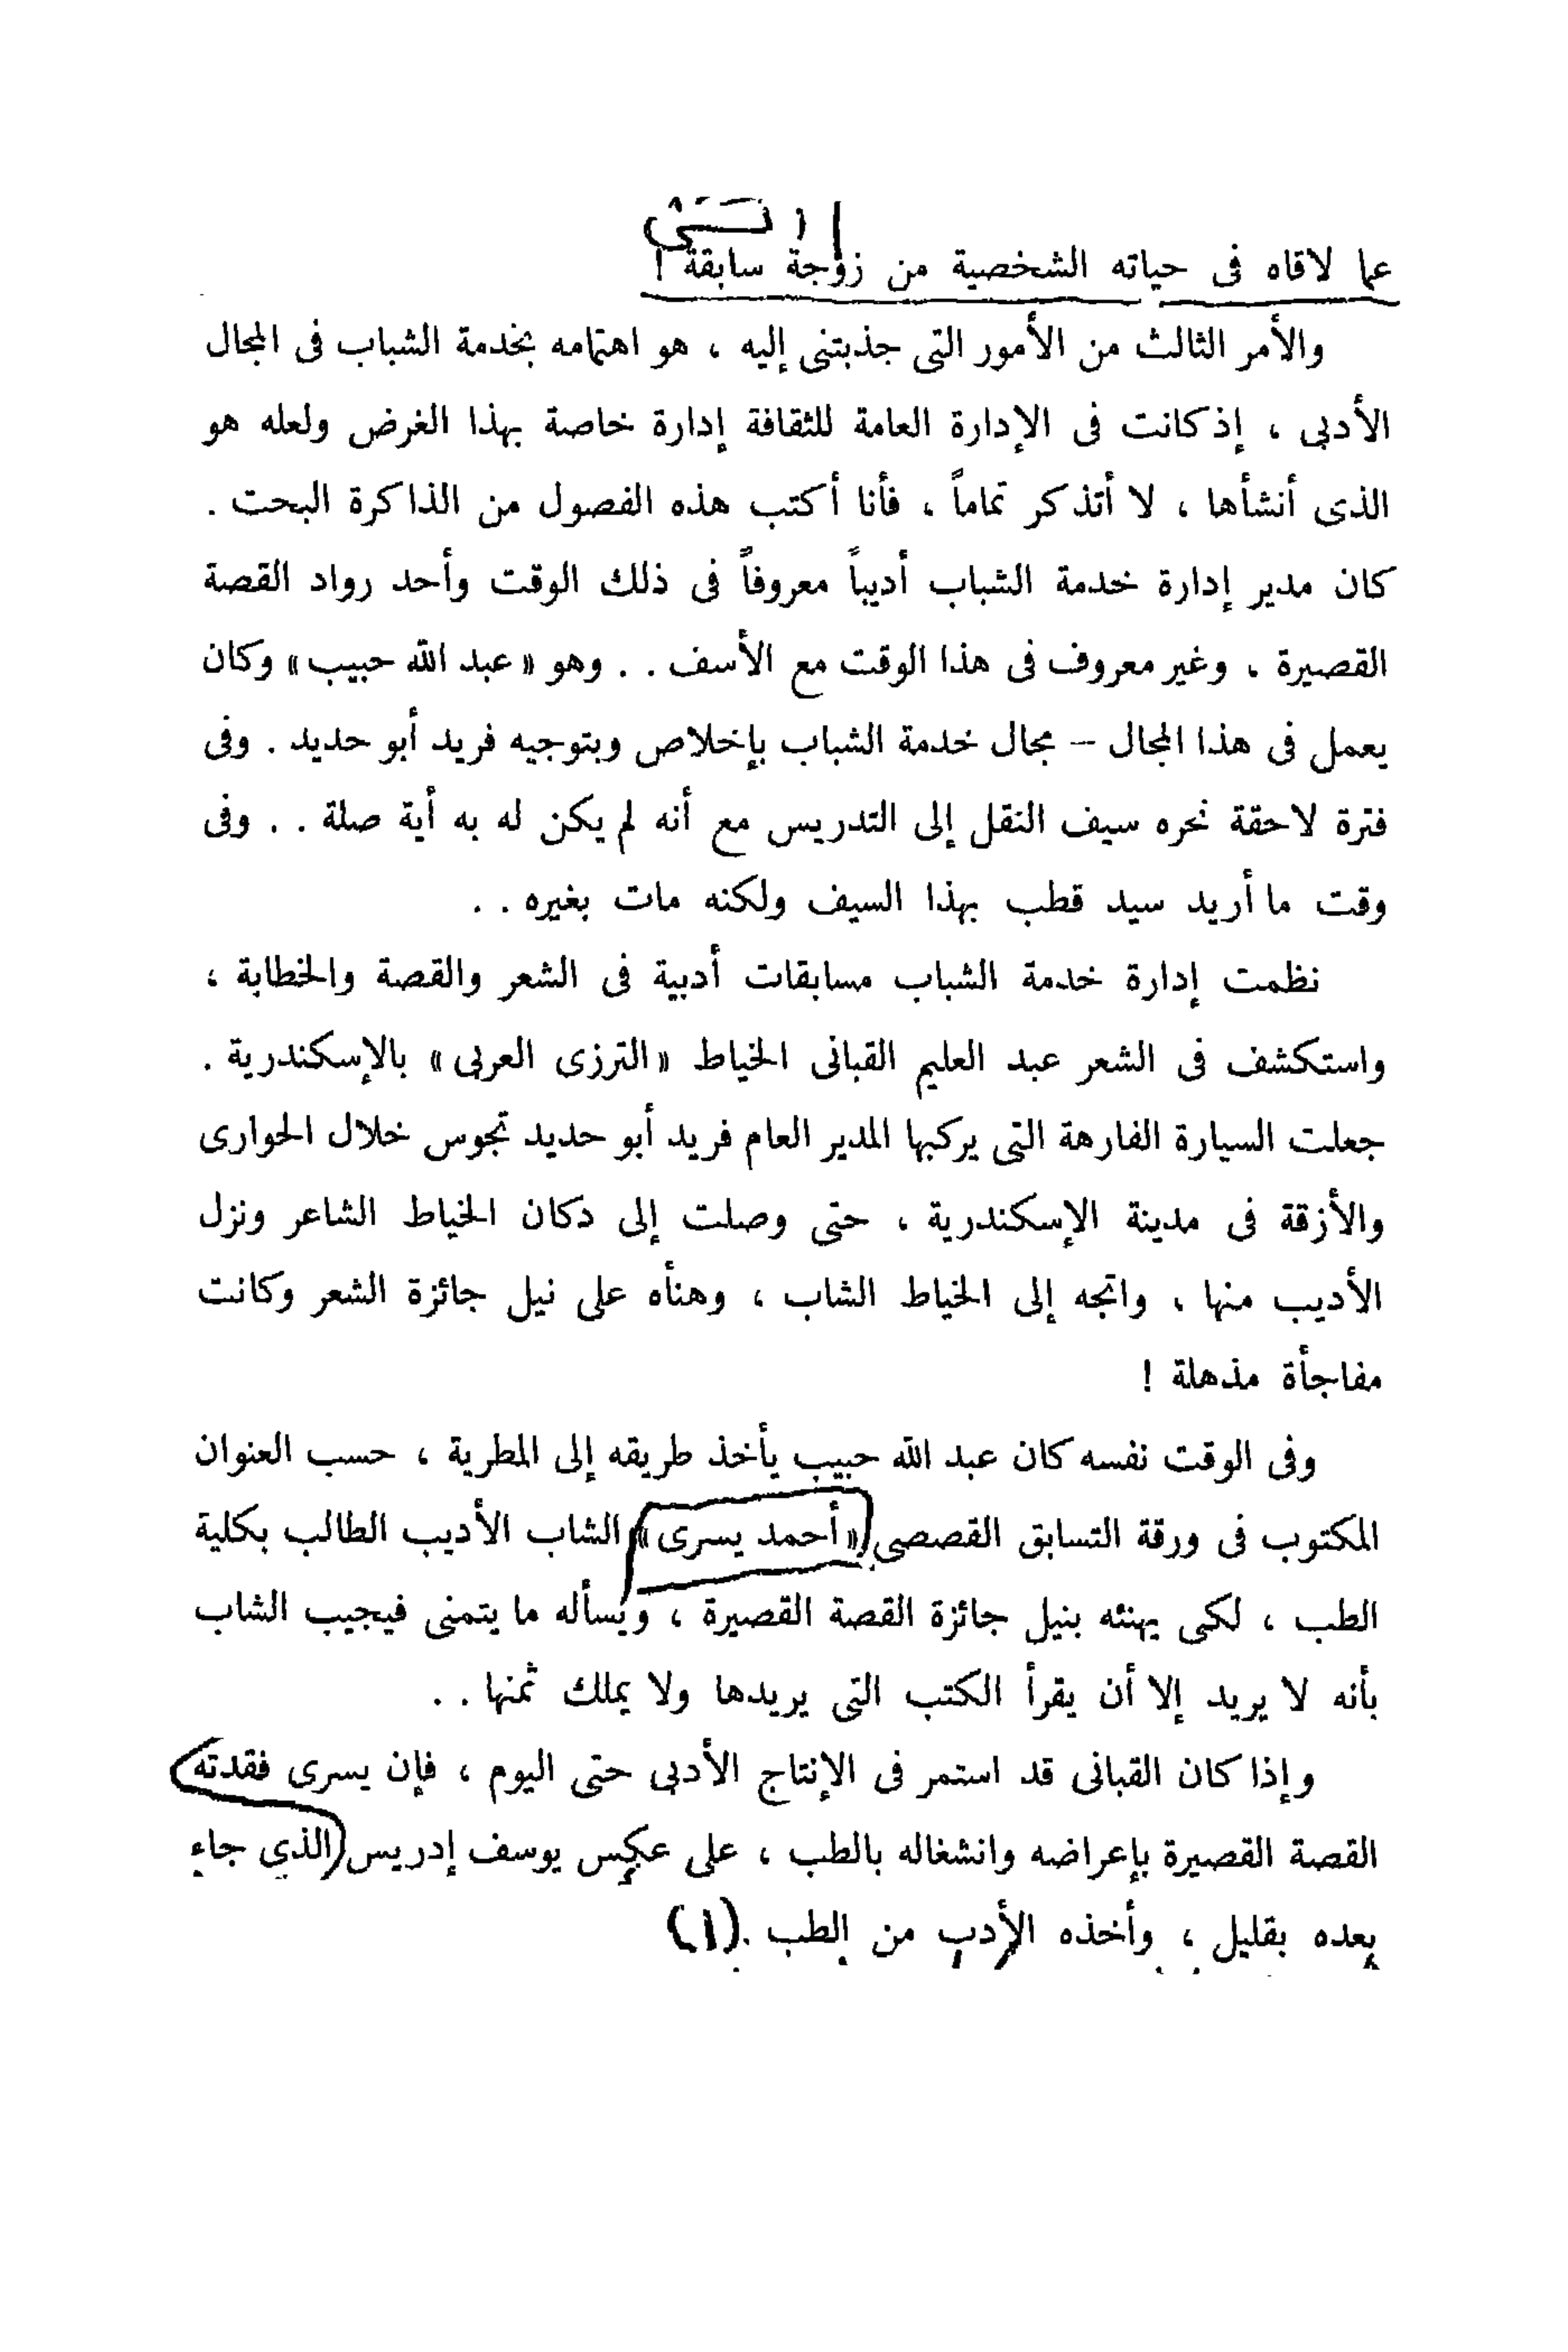 عما لاقاه فى حياته الشخصية من زوجة سابقة !
والأمر الثالث من الأمور التى جذبتنى إليه ، هو اهتمامه بخدمة الشباب فى المجال
الأدبى ، إذ كانت فى الإدارة العامة للثقافة إدارة خاصة بهذا الغرض ولعله هو
الذى أنشأها ، لا أتذكر تماماً ، فأنا أكتب هذه الفصول من الذاكرة البحت .
كان مدير إدارة خدمة الشباب أديباً معروفاً فى ذلك الوقت وأحد رواد القصة
القصيرة ، وغير معروف فى هذا الوقت مع الأسف . . وهو « عبد الله حبيب » وكان
يعمل فى هذا المجال – مجال خدمة الشباب بإخلاص وبتوجيه فريد أبو حديد . وفى
فترة لاحقة نحره سيف النقل إلى التدريس مع أنه لم يكن له به أية صلة . . وفى
وقت ما أريد سيد قطب بهذا السيف ولكنه مات بغيره . .
نظمت إدارة خدمة الشباب مسابقات أدبية فى الشعر والقصة والخطابة ،
واستكشف فى الشعر عبد العليم القبانى الخياط « الترزى العربى » بالإسكندرية .
جعلت السيارة الفارهة التى يركبها المدير العام فريد أبو حديد تجوس خلال الحوارى
والأزقة فى مدينة الإسكندرية ، حتى وصلت إلى دكان الخياط الشاعر ونزل
الأديب منها ، واتجه إلى الخياط الشاب ، وهنأه على نيل جائزة الشعر وكانت
مفاجأة مذهلة !
وفى الوقت نفسه كان عبد الله حبيب يأخذ طريقه إلى المطرية ، حسب العنوان
المكتوب فى ورقة التسابق القصصى « أحمد يسرى » الشاب الأديب الطالب بكلية
الطب ، لكى يهنئه بنيل جائزة القصة القصيرة ، ويسأله ما يتمنى فيجيب الشاب
بأنه لا يريد إلا أن يقرأ الكتب التى يريدها ولا يملك ثمنها . .
وإذا كان القبانى قد استمر فى الإنتاج الأدبى حتى اليوم ، فإن يسرى فقدته
القصة القصيرة بإعراضه وانشغاله بالطب ، على عكس يوسف إدريس الذي جاء
بعده بقليل ، وأخذه الأدب من الطب . (١)